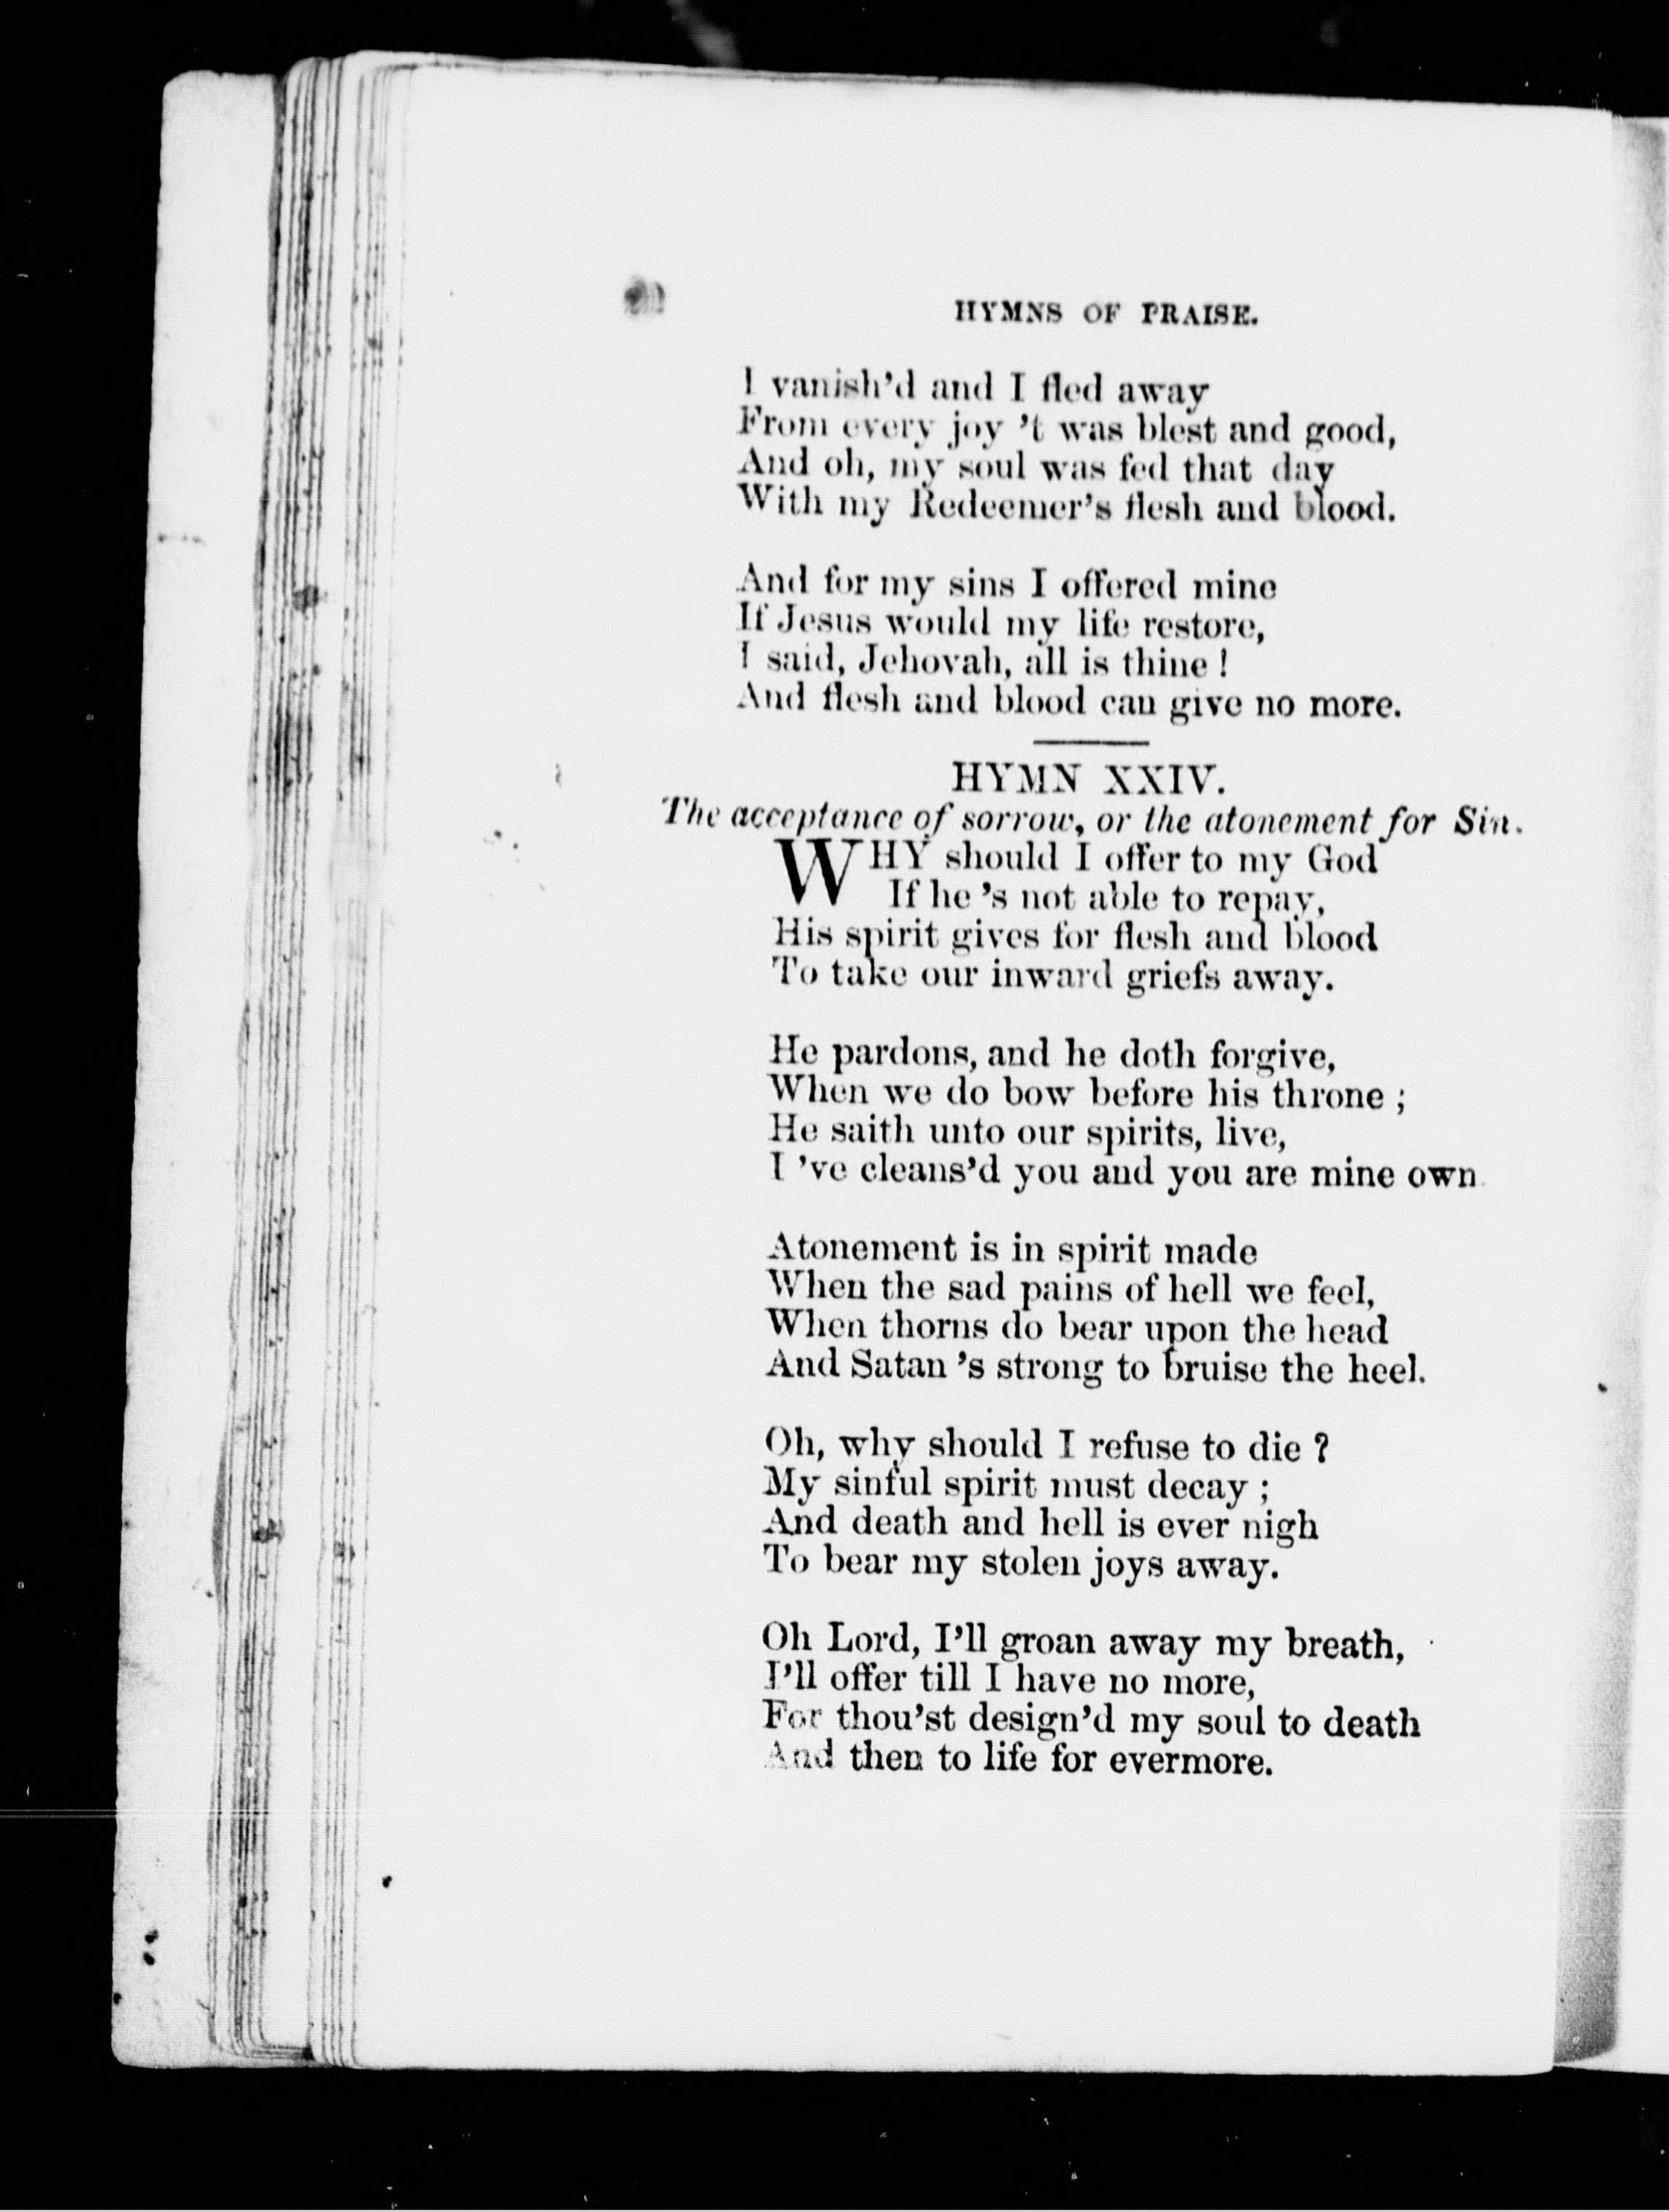 HYMNS OF PRAISE.
I vanish'd and I fled away
From every joy 't was blest and good,
And oh, my soul was fed that day
With my Redeemer's flesh and blood.
And for my sins I offered mine
If Jesus would my life restore,
I said, Jehovah, all is thine !
And flesh and blood can give no more.
HYMN XXIV.
The acceptance of sorrow, or the atonement for Sin.
WHY should I offer to my God
If he 's not able to repay,
His spirit gives for flesh and blood
To take our inward griefs away.
He pardons, and he doth forgive,
When we do bow before his throne ;
He saith unto our spirits, live,
I 've cleans'd you and you are mine own
Atonement is in spirit made
When the sad pains of hell we feel,
When thorns do bear upon the head
And Satan 's strong to bruise the heel.
Oh, why should I refuse to die ?
My sinful spirit must decay ;
And death and hell is ever nigh
To bear my stolen joys away.
Oh Lord, I'll groan away my breath,
I'll offer till I have no more,
For thou'st design'd my soul to death
And then to life for evermore.